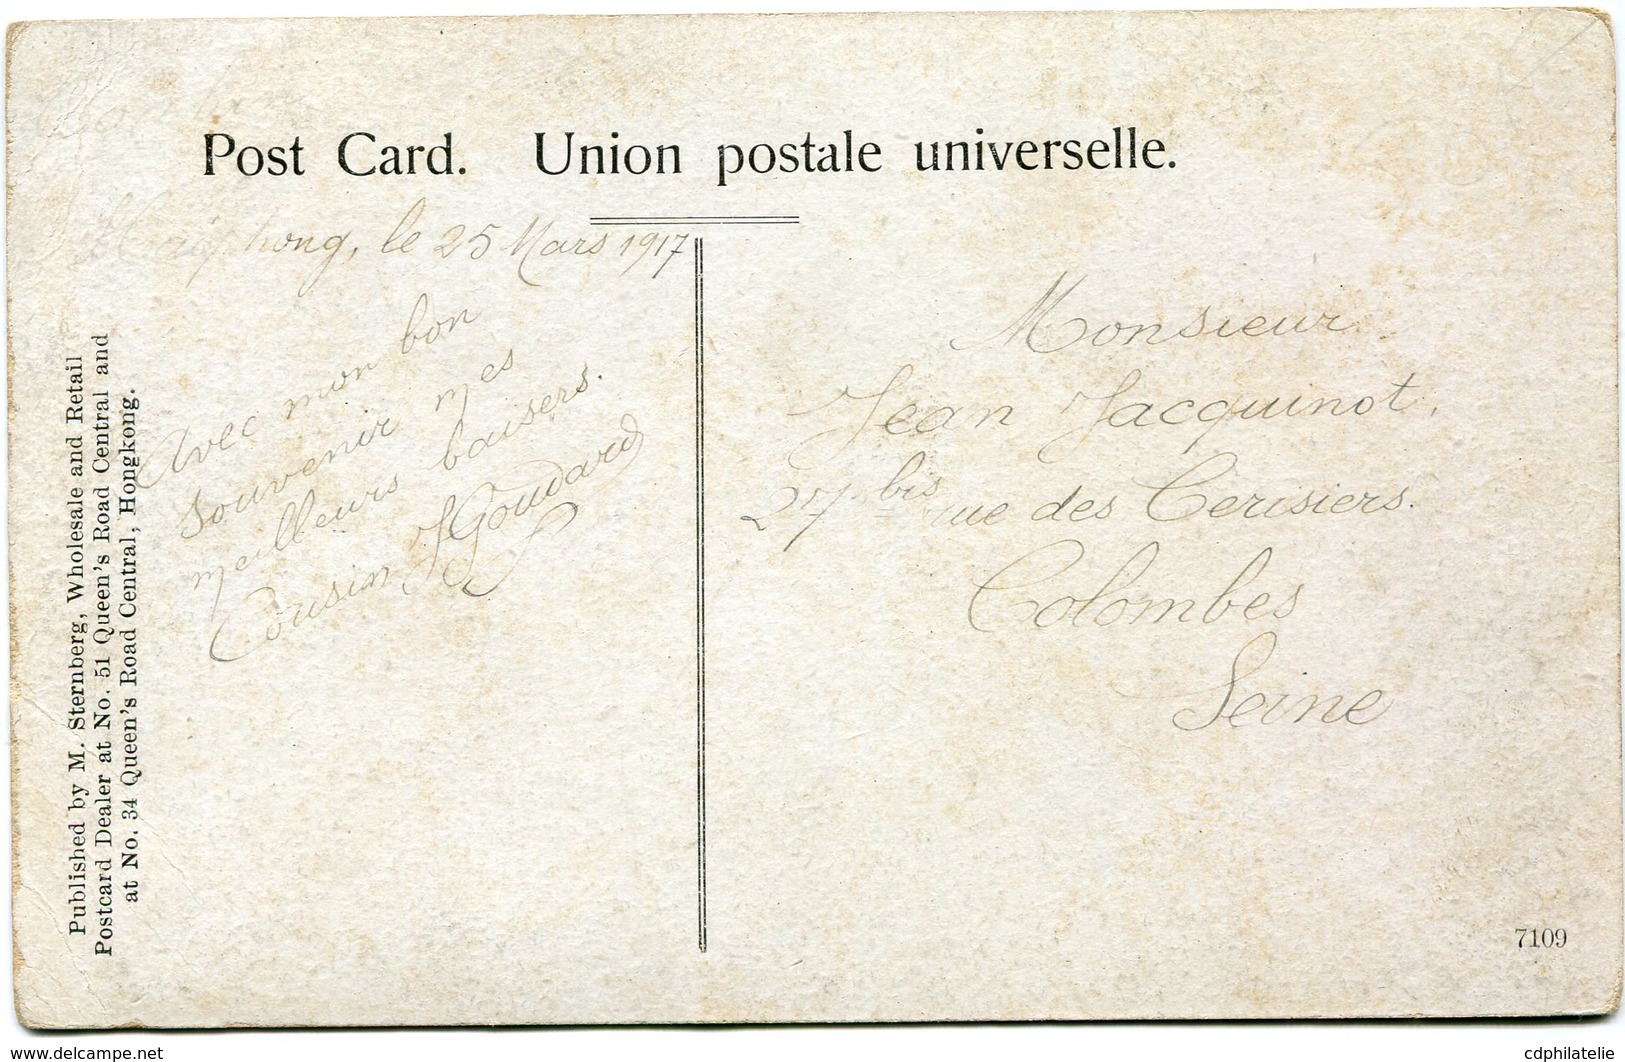 Post Card. Union postale universelle.
Haiphong, le 25 Mars 1917
Avec mon bon
souvenir mes
meilleurs baisers.
Cousin JGoudard
Monsieur
Jean Jacquinot,
27 bis rue des Cerisiers.
Colombes
Seine
Published by M. Sternberg, Wholesale and Retail
Postcard Dealer at No. 51 Queen's Road Central and
at No. 34 Queen's Road Central, Hongkong.
7109
www.delcampe.net
cdphilatelie